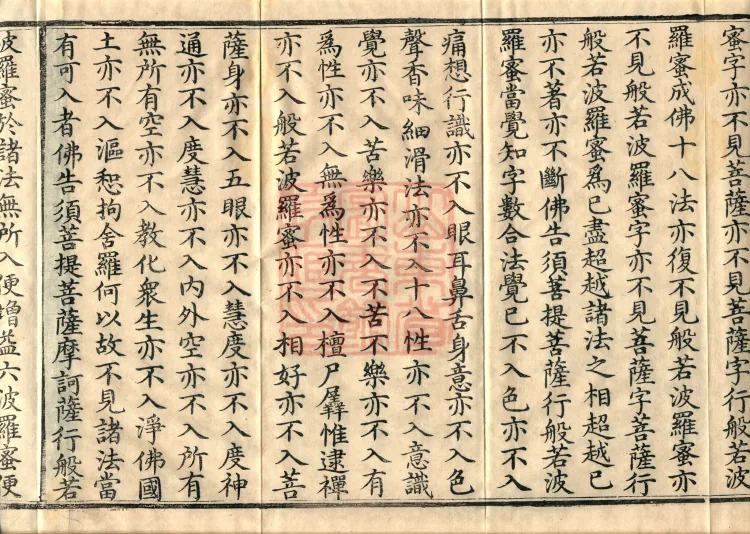 蜜字亦不見菩薩亦不見菩薩字行般若波
羅蜜成佛十八法亦復不見般若波羅蜜亦
不見般若波羅蜜字亦不見菩薩字菩薩行
般若波羅蜜爲已盡超越諸法之相超越已
亦不著亦不斷佛告須菩提菩薩行般若波
羅蜜當覺知字數合法覺已不入色亦不入
痛想行識亦不入眼耳鼻舌身意亦不入色
聲香味細滑法亦不入十八性亦不入意識
覺亦不入苦樂亦不入不苦不樂亦不入有
爲性亦不入無爲性亦不入檀尸羼惟逮禪
亦不入般若波羅蜜亦不入相好亦不入菩
薩身亦不入五眼亦不入慧度亦不入度神
通亦不入度慧亦不入内外空亦不入所有
無所有空亦不入教化衆生亦不入淨佛國
土亦不入漚惒拘舍羅何以故不見諸法當
有可入者佛告須菩提菩薩摩訶薩行般若
波羅蜜於諸法無所入便增益六波羅蜜便